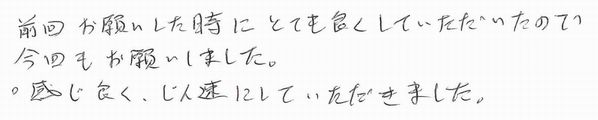 前回 お願いした時に とても良くしていただいたので
今回も お願いしました。
。感じ良く、じん速にしていただきました。